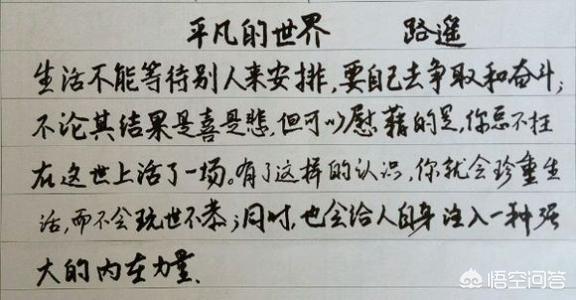 平凡的世界 路遥
生活不能等待别人来安排,要自己去争取和奋斗;
不论其结果是喜是悲,但可以慰藉的是,你总不枉
在这世上活了一场。有了这样的认识,你就会珍重生
活,而不会玩世不恭;同时,也会给人自身注入一种强
大的内在力量.
悟空问答